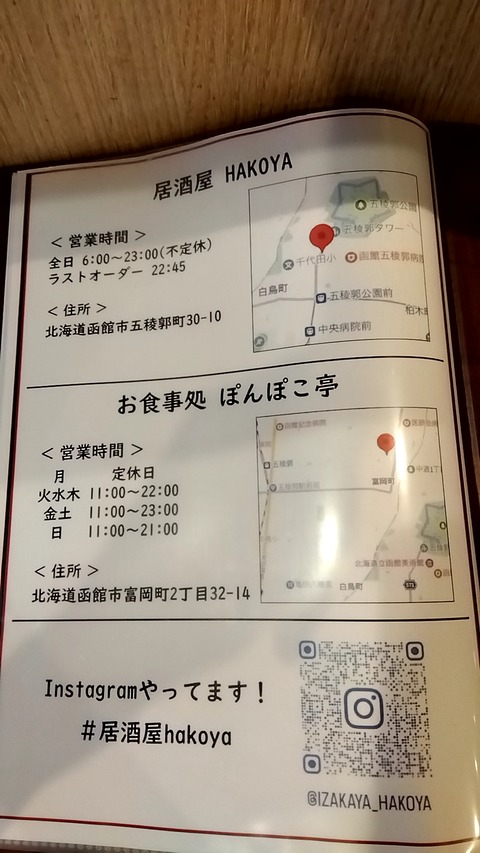 居酒屋 HAKOYA
< 営業時間 >
全日 6:00～23:00(不定休)
ラストオーダー 22:45
< 住所 >
北海道函館市五稜郭町30-10
五稜郭公園
五稜郭タワー
千代田小
函館五稜郭病院
白鳥町
五稜郭公園前
柏木
中央病院前
お食事処 ぽんぽこ亭
< 営業時間 >
月 定休日
火水木 11:00～22:00
金土 11:00～23:00
日 11:00～21:00
< 住所 >
北海道函館市富岡町2丁目32-14
富岡町
北海道立函館美術館
白鳥町
571
Instagramやってます！
#居酒屋hakoya
@IZAKAYA_HAKOYA